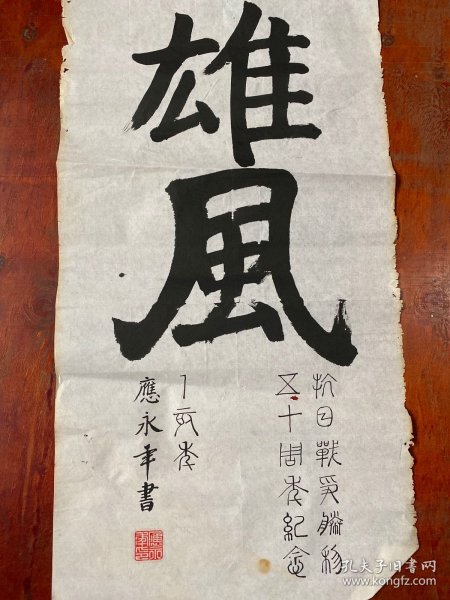 雄風
抗日戰爭勝利
五十周年紀念
乙亥年
應永年書
孔夫子旧书网
www.kongfz.com